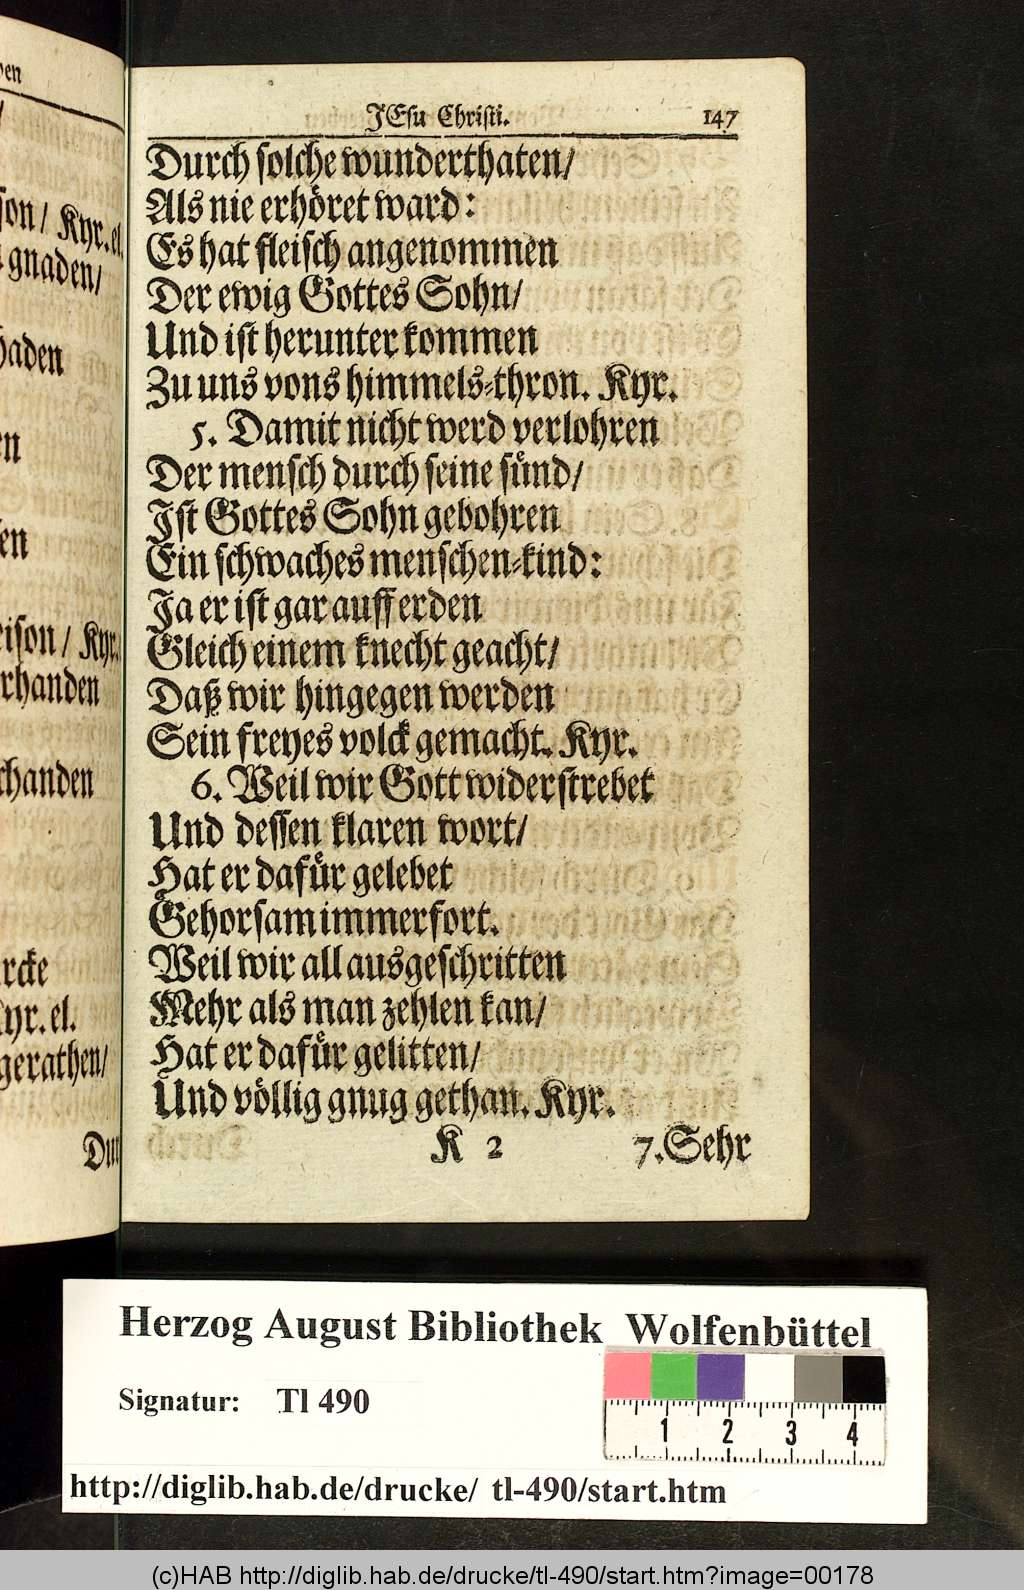 JEsu Christi. 147
Durch solche wunderthaten/
Als nie erhöret ward:
Es hat fleisch angenommen
Der ewig Gottes Sohn/
Und ist herunter kommen
Zu uns vons himmels-thron. Kyr.
5. Damit nicht werd verlohren
Der mensch durch seine sünd/
Ist Gottes Sohn gebohren
Ein schwaches menschen-kind:
Ja er ist gar auff erden
Gleich einem knecht geacht/
Daß wir hingegen werden
Sein freyes volck gemacht. Kyr.
6. Weil wir Gott widerstrebet
Und dessen klaren wort/
Hat er dafür gelebet
Gehorsam immerfort.
Weil wir all ausgeschritten
Mehr als man zehlen kan/
Hat er dafür gelitten/
Und völlig gnug gethan. Kyr.
K 2 7. Sehr
son/ Kyr. el.
gnaden/
haden
eison/ Kyr.
rhanden
handen
rcke
Kyr. el.
gerathen/
Herzog August Bibliothek Wolfenbüttel
Signatur: Tl 490
1 2 3 4
http://diglib.hab.de/drucke/ tl-490/start.htm
(c)HAB http://diglib.hab.de/drucke/tl-490/start.htm?image=00178